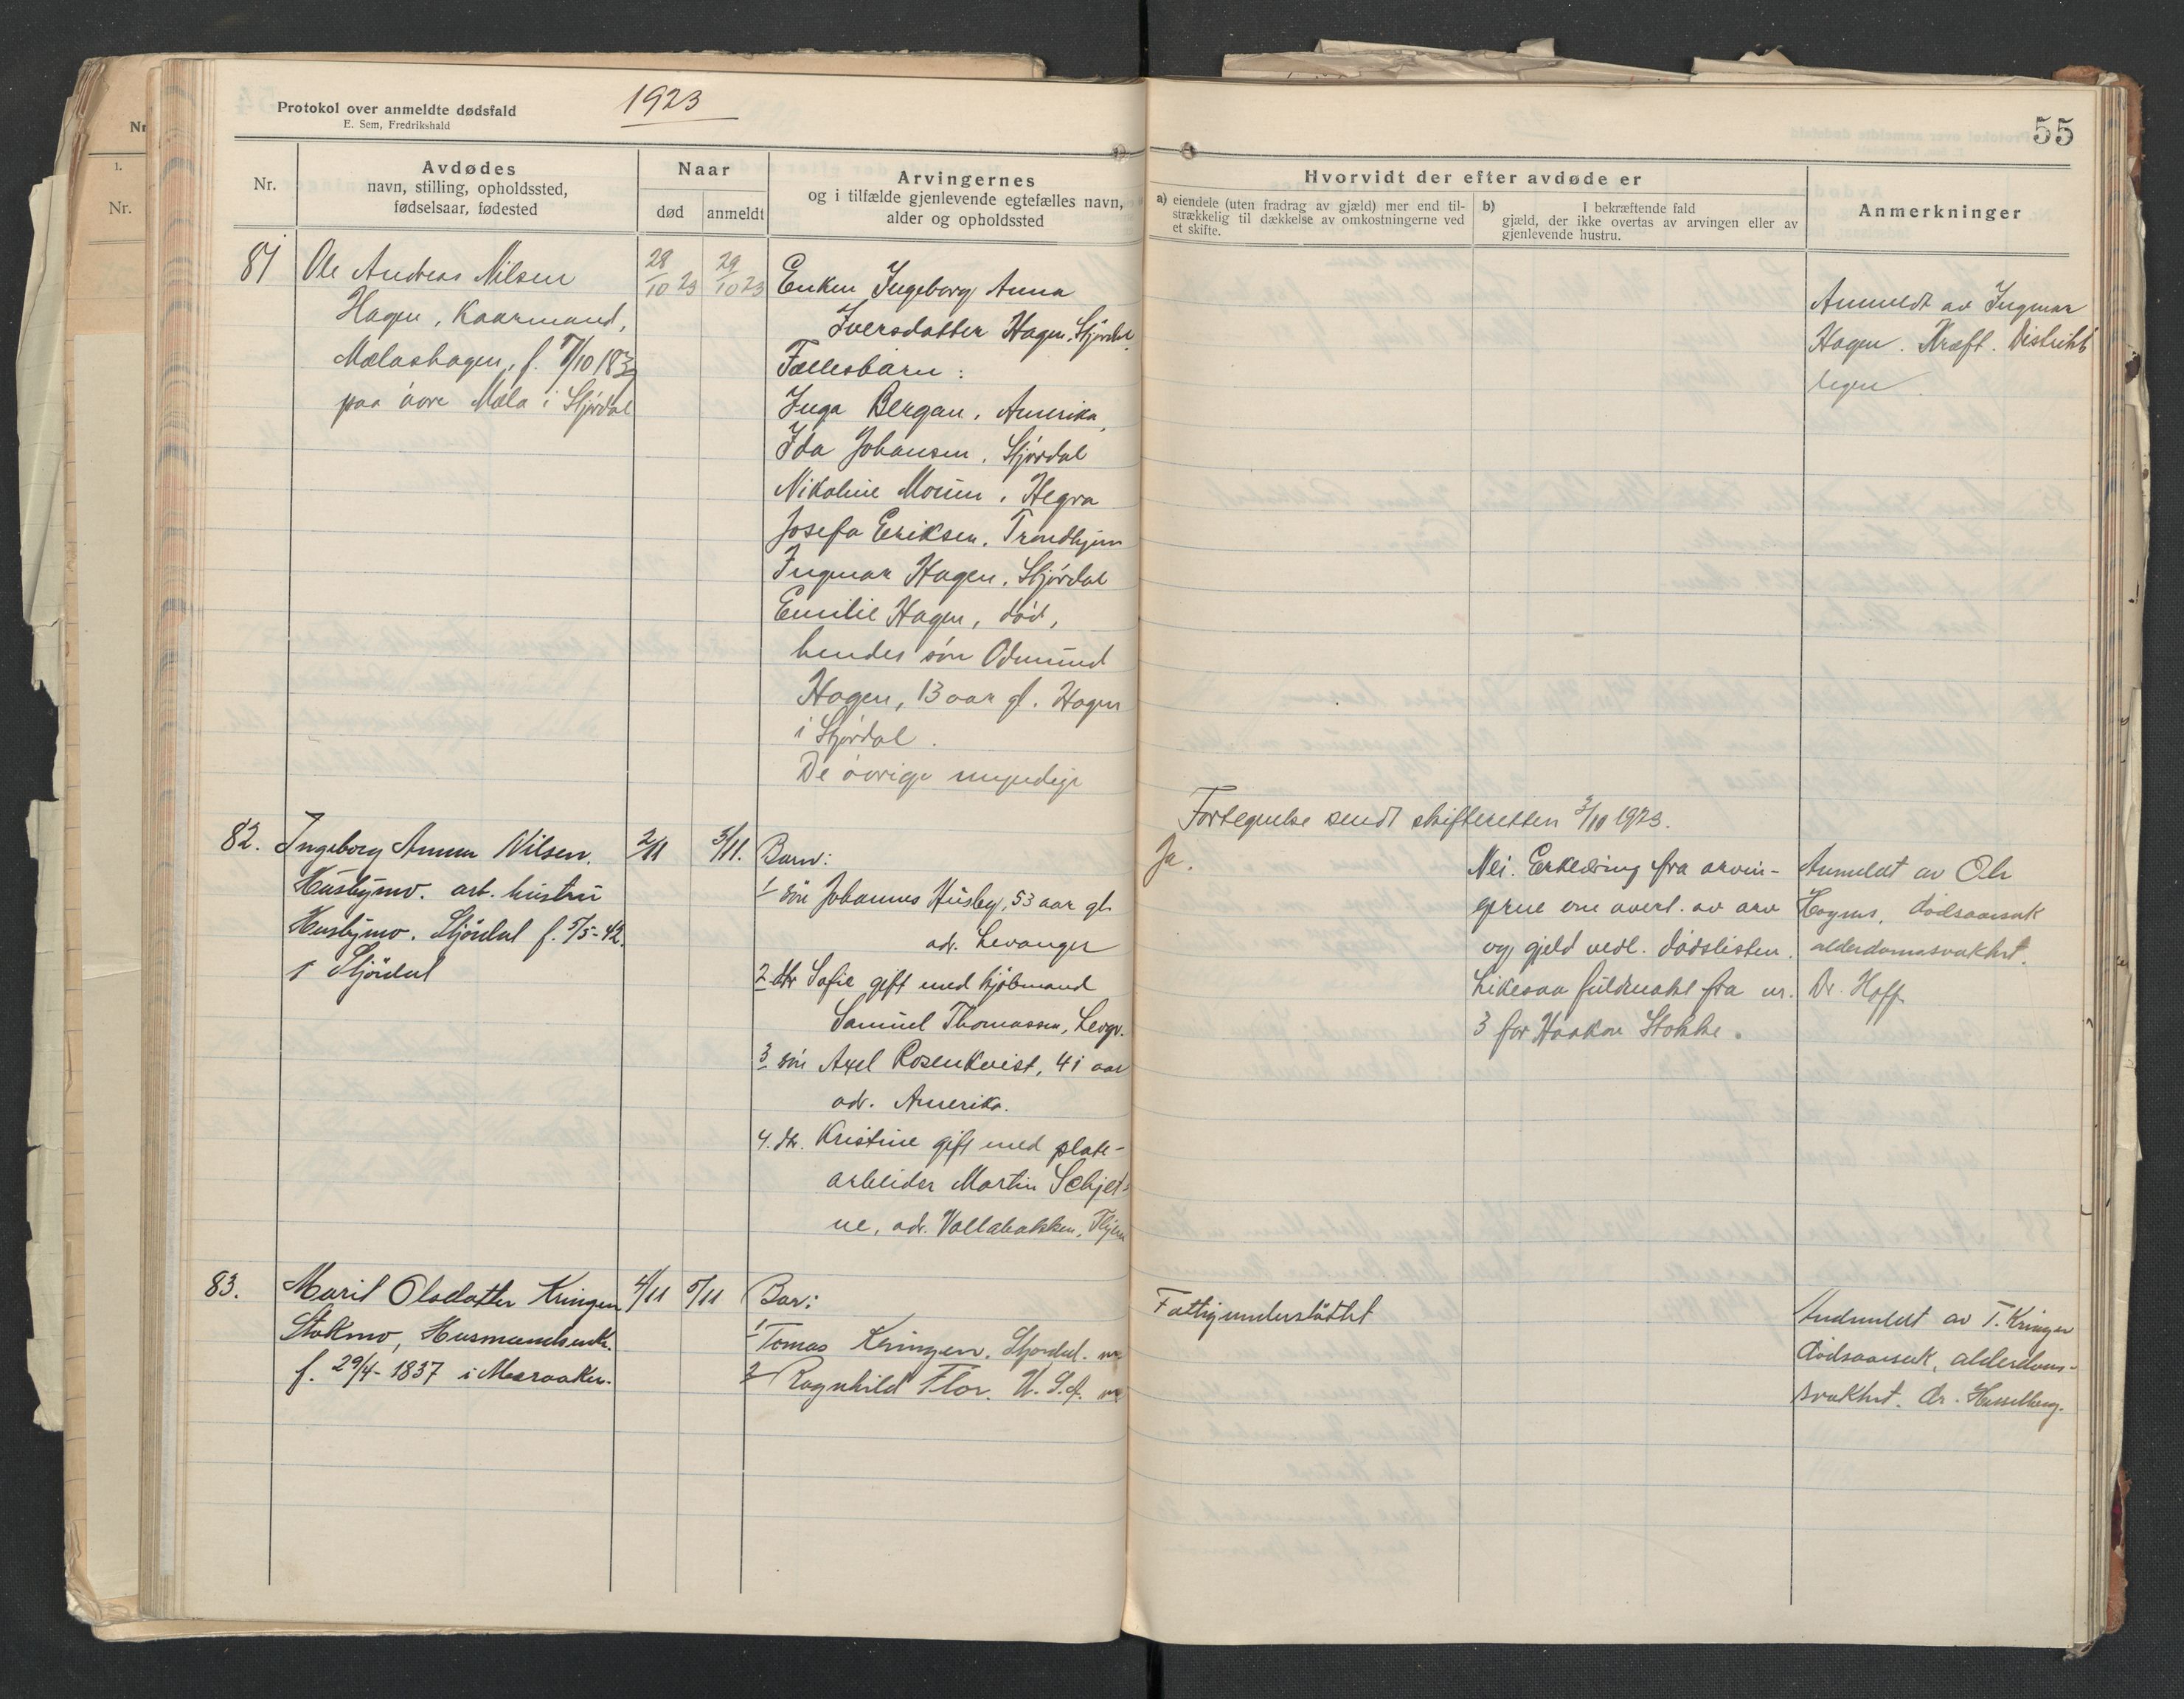 Protokol over anmeldte dødsfald
E. Sem, Fredrikshald
1923
55
Nr.
Avdødes
navn, stilling, opholdssted,
fødselsaar, fødested
Naar
død
anmeldt
Arvingernes
og i tilfælde gjenlevende egtefælles navn,
alder og opholdssted
Hvorvidt der efter avdøde er
a) eiendele (uten fradrag av gjæld) mer end til-
strækkelig til dækkelse av omkostningerne ved
et skifte.
b) I bekræftende fald
gjæld, der ikke overtas av arvingen eller av
gjenlevende hustru.
Anmerkninger
Nr
1.
Nr.
81
Ole Andreas Nilsen
Hagen, Kaarmand,
Mælashagen, f. 7/10 183
paa övre Mæla i Stjørdal
28/10 23
29/10 23
Enken Ingeborg Anna
Iversdatter Hagen, Stjørdal
Fællesbarn:
Inga Bergan, Amerika,
Ida Johansen, Stjørdal
Nikoline Moum, Hegra
Josefa Eriksen, Trondhjem
Ingmar Hagen, Stjørdal
Emilie Hagen, død,
hendes søn Odmund
Hagen, 13 aar gl. Hagen
i Stjørdal.
De øvrige myndige
Anmeldt av Ingmar
Hagen. Kræft. Distrikts
legen
Fortegnelse sendt skifteretten 3/10 1923.
82.
Ingeborg Anna Nilsen
Husbymo. arb. hustru
Husbymo. Stjørdal f. 5/5-42.
i Stjørdal
2/11
3/11.
Barn:
1 søn Johannes Husby, 53 aar gl.
adr. Levanger
2 dtr Sofie gift med kjøbmand
Samuel Thomassen, Levgr.
3 søn Axel Rosenkvist, 41 aar
adr. Amerika.
4. dtr. Kristine gift med plate-
arbeider Martin Schjet-
ne, adr. Vollabakken, Thjem
Ja.
Nei. Erklæring fra arvin-
gerne om overt. av arv
og gjeld vedl. dødslisten.
Likesaa fuldmakt fra nr.
3 for Haakon Stokke.
Anmeldt av Ole
Hagens, dødsaarsak
alderdomssvakhet.
Dr. Hoff
83.
Marit Olsdatter Kringen
Stokmo, Husmandsenke.
f. 29/4-1837 i Meraaker.
4/11
5/11
Bar:
1 Tomas Kringen. Stjørdal.
2 Ragnhild Flor. U.S.A.
Fattigunderstøttet
Andmeldt av T. Kringen
dødsaarsak, alderdoms-
svakhet. dr. Hasselberg.